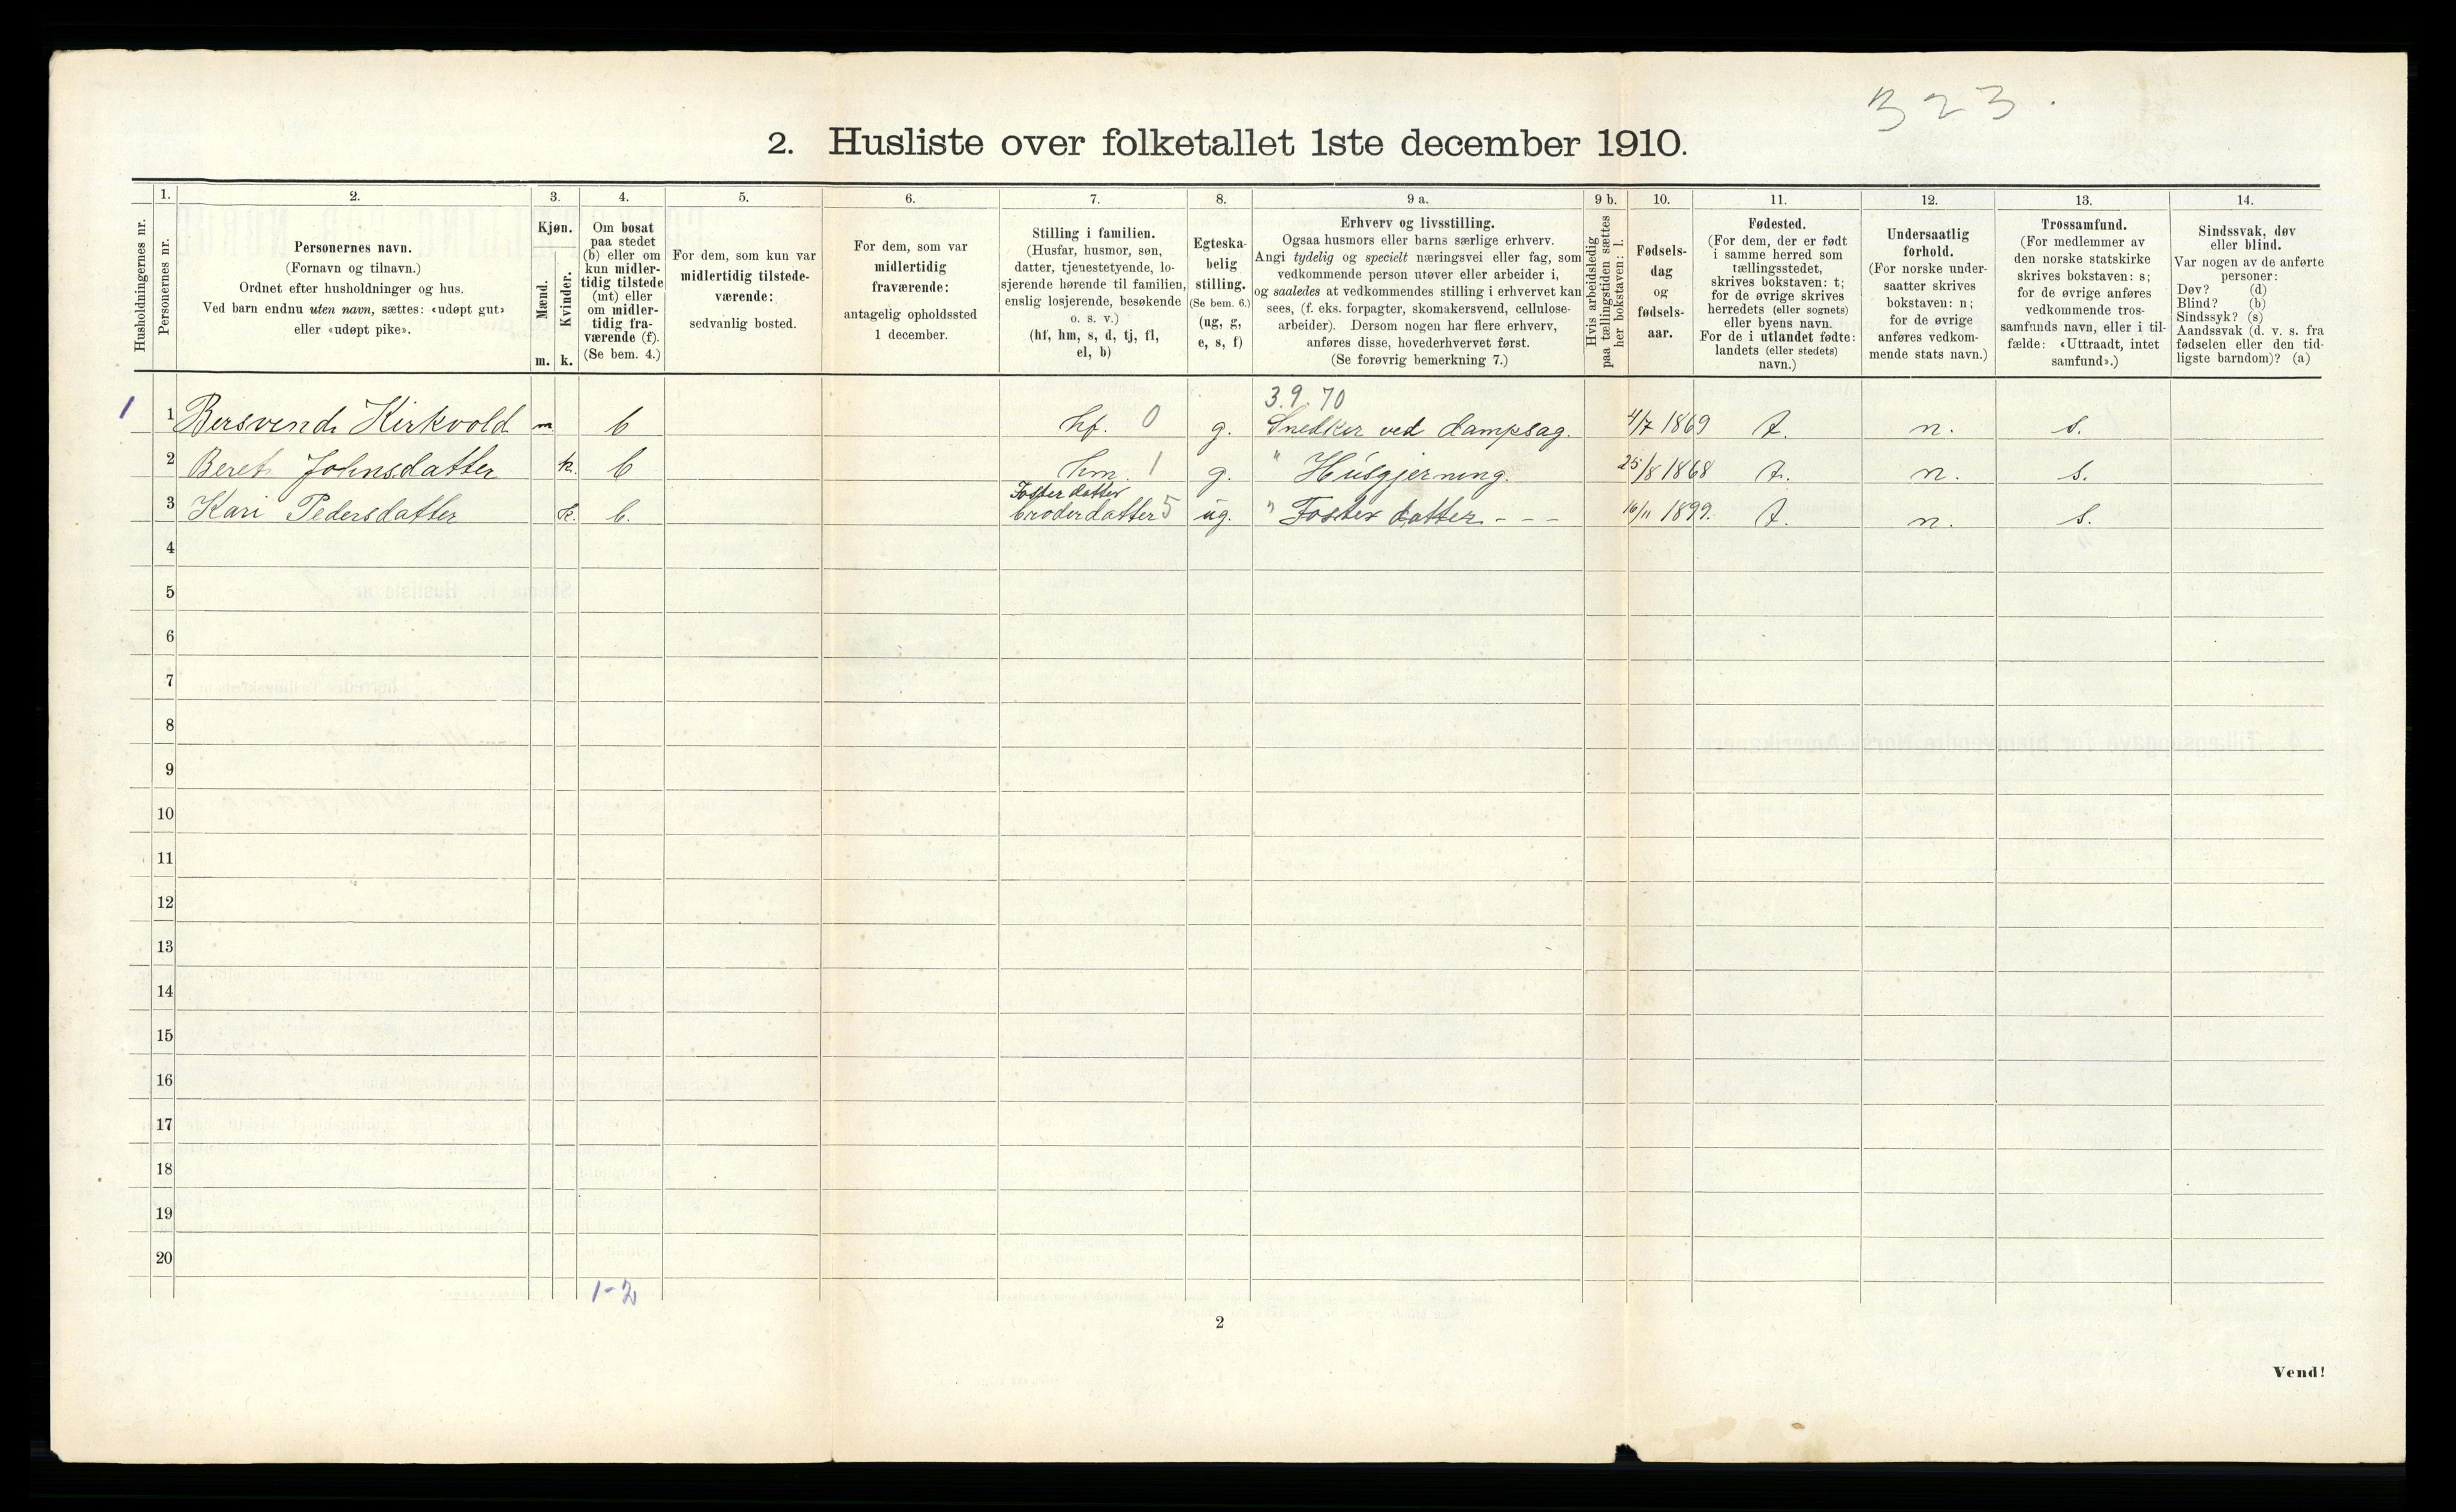 323.
2. Husliste over folketallet 1ste december 1910.
Husholdningernes nr.
1.
Personernes nr.
2.
Personernes navn.
(Fornavn og tilnavn.)
Ordnet efter husholdninger og hus.
Ved barn endnu uten navn, sættes: «udøpt gut»
eller «udøpt pike».
3.
Kjøn.
Mænd.
m.
Kvinder.
k.
4.
Om bosat
paa stedet
(b) eller om
kun midler-
tidig tilstede
(mt) eller
om midler-
tidig fra-
værende (f).
(Se bem. 4.)
5.
For dem, som kun var
midlertidig tilstede-
værende:
sedvanlig bosted.
6.
For dem, som var
midlertidig
fraværende:
antagelig opholdssted
1 december.
7.
Stilling i familien.
(Husfar, husmor, søn,
datter, tjenestetyende, lo-
sjerende hørende til familien,
enslig losjerende, besøkende
o. s. v.)
(hf, hm, s, d, tj, fl,
el, b)
8.
Egteska-
belig
stilling.
(Se bem. 6.)
(ug, g,
e, s, f)
9 a.
Erhverv og livsstilling.
Ogsaa husmors eller barns særlige erhverv.
Angi tydelig og specielt næringsvei eller fag, som
vedkommende person utøver eller arbeider i,
og saaledes at vedkommendes stilling i erhvervet kan
sees, (f. eks. forpagter, skomakersvend, cellulose-
arbeider). Dersom nogen har flere erhverv,
anføres disse, hovederhvervet først.
(Se forøvrig bemerkning 7.)
9 b.
Hvis arbeidsledig
paa tællingstiden sættes
her bokstaven: l.
10.
Fødsels-
dag
og
fødsels-
aar.
11.
Fødested.
(For dem, der er født
i samme herred som
tællingsstedet,
skrives bokstaven: t;
for de øvrige skrives
herredets (eller sognets)
eller byens navn.
For de i utlandet fødte:
landets (eller stedets)
navn.)
12.
Undersaatlig
forhold.
(For norske under-
saatter skrives
bokstaven: n;
for de øvrige
anføres vedkom-
mende stats navn.)
13.
Trossamfund.
(For medlemmer av
den norske statskirke
skrives bokstaven: s;
for de øvrige anføres
vedkommende tros-
samfunds navn, eller i til-
fælde: «Uttraadt, intet
samfund».)
14.
Sindssvak, døv
eller blind.
Var nogen av de anførte
personer:
Døv? (d)
Blind? (b)
Sindssyk? (s)
Aandssvak (d. v. s. fra
fødselen eller den tid-
ligste barndom)? (a)
3.9.70
1 1 Bersvend Kirkvold m b hf. 0 g. Snedker ved dampsag. 4/7 1869 t. n. s.
2 Beret Johnsdatter k. b hm. 1 g. " Husgjerning. 25/8 1868 t. n. s.
Foster datter
3 Kari Pedersdatter k. b. broderdatter 5 ug. " Foster datter - - - 16/11 1899. t. n. s.
4
5
6
7
8
9
10
11
12
13
14
15
16
17
18
19
20
1-2
2
Vend!